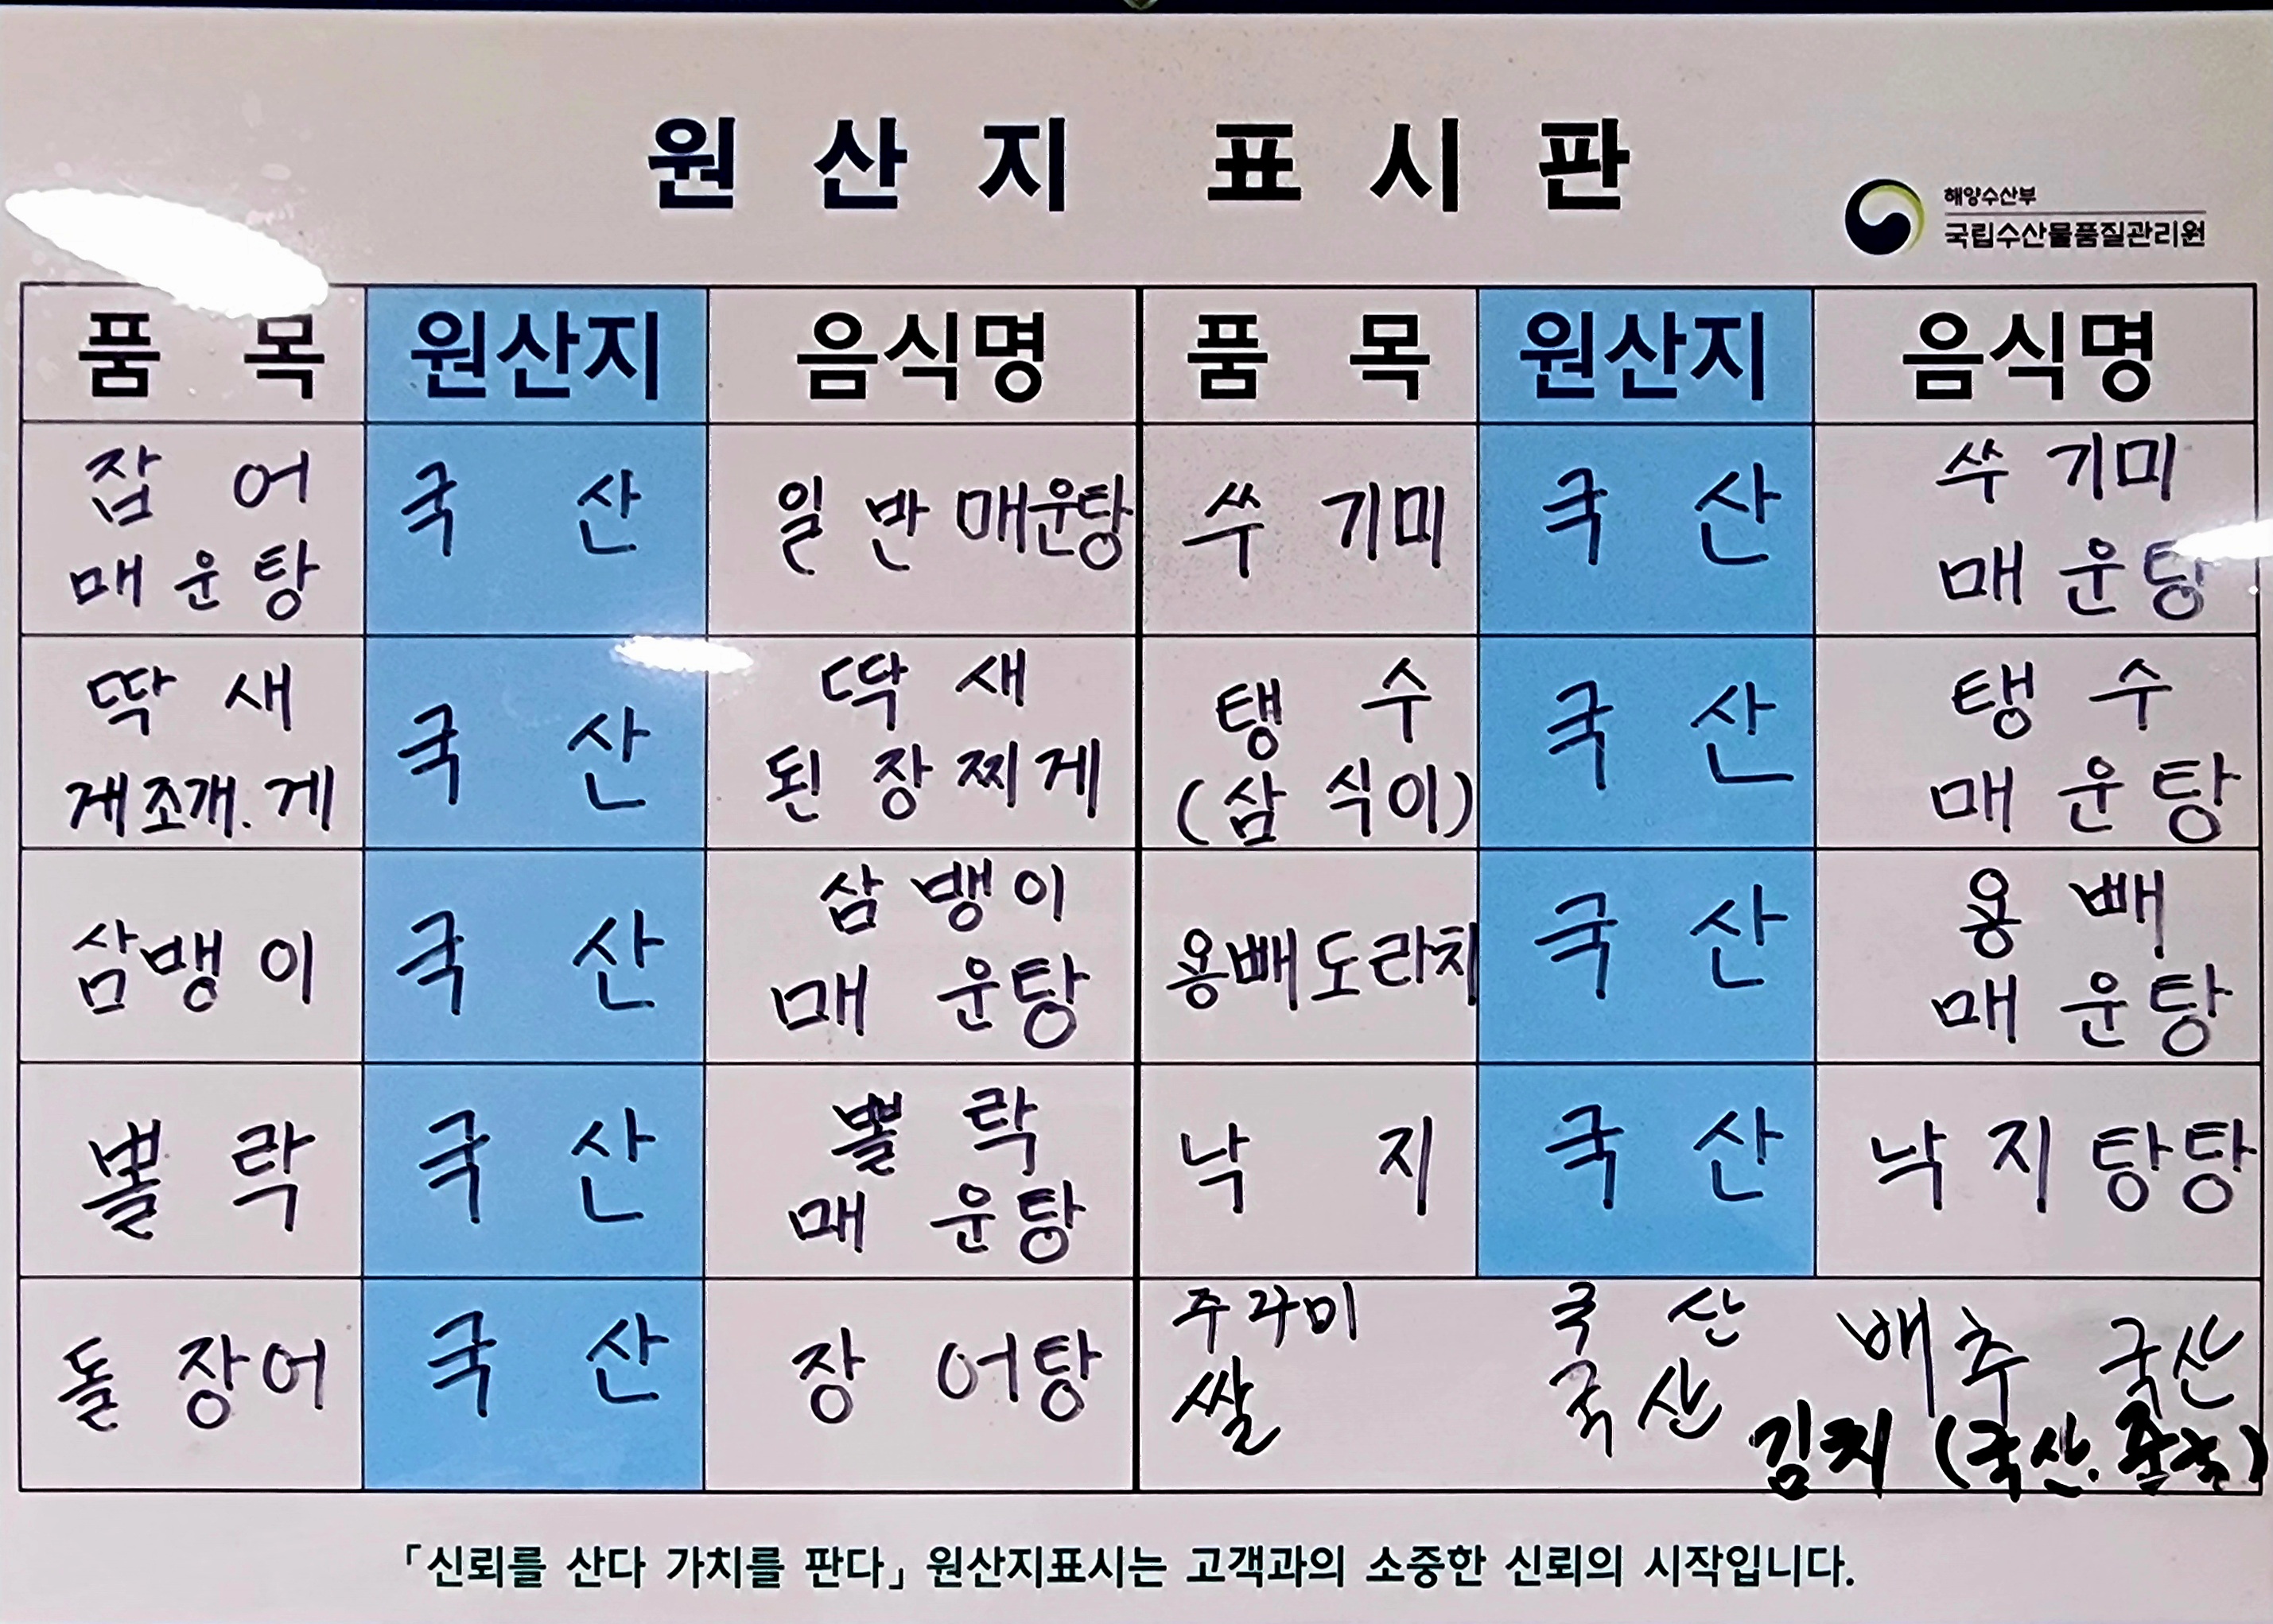 원산지 표시판
해양수산부
국립수산물품질관리원
품목 원산지 음식명 품목 원산지 음식명
잡어
매운탕
국산
일반매운탕
쑤기미
국산
쑤기미
매운탕
딱새
게조개.게
국산
딱새
된장찌게
탱수
(삼식이)
국산
탱수
매운탕
삼뱅이
국산
삼뱅이
매운탕
용빼도라치
국산
용빼
매운탕
뽈락
국산
뽈락
매운탕
낙지
국산
낙지탕탕
돌장어
국산
장어탕
주꾸미 국산
쌀 국산
배추 국산
김치 (국산.중국)
「신뢰를 산다 가치를 판다」 원산지표시는 고객과의 소중한 신뢰의 시작입니다.